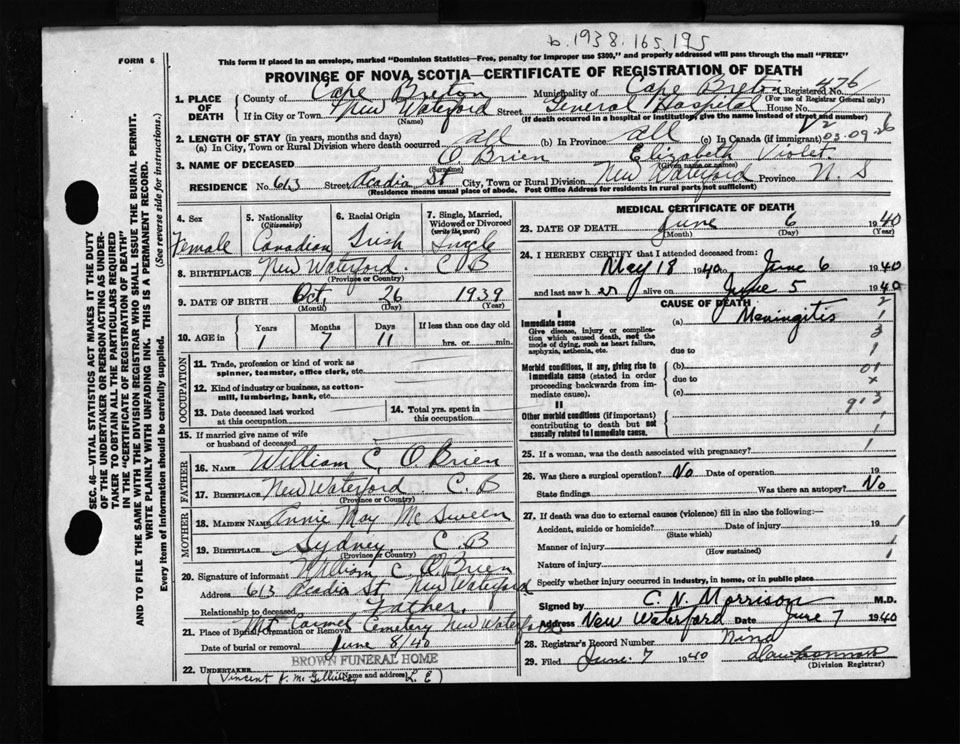 b. 1938.165.195
FORM 6
This form if placed in an envelope, marked "Dominion Statistics—Free, penalty for improper use $300," and properly addressed will pass through the mail "FREE"
PROVINCE OF NOVA SCOTIA—CERTIFICATE OF REGISTRATION OF DEATH
1. PLACE OF DEATH
County of Cape Breton Municipality of Cape Breton Registered No. 476
(For use of Registrar General only)
If in City or Town New Waterford Street General Hospital House No.
(Name) (If death occurred in a hospital or institution, give the name instead of street and number)
2. LENGTH OF STAY (in years, months and days)
(a) In City, Town or Rural Division where death occurred all (b) In Province all (c) In Canada (if immigrant)
23.09.26
3. NAME OF DECEASED O'Brien Elizabeth Violet
(Surname) (Given name or names)
RESIDENCE No. 613 Street Acadia St City, Town or Rural Division New Waterford Province N. S
(Residence means usual place of abode. Post Office Address for residents in rural parts not sufficient)
4. Sex Female
5. Nationality (Citizenship) Canadian
6. Racial Origin Irish
7. Single, Married, Widowed or Divorced (write the word) Single
8. BIRTHPLACE New Waterford. C B
(Province or Country)
9. DATE OF BIRTH Oct, 26 1939
(Month) (Day) (Year)
10. AGE in
Years Months Days If less than one day old
1 7 11 hrs. or min.
OCCUPATION
11. Trade, profession or kind of work as spinner, teamster, office clerk, etc.
12. Kind of industry or business, as cotton-mill, lumbering, bank, etc.
13. Date deceased last worked at this occupation
14. Total yrs. spent in this occupation
15. If married give name of wife or husband of deceased
FATHER
16. NAME William C. O'Brien
17. BIRTHPLACE New Waterford. C. B
(Province or Country)
MOTHER
18. MAIDEN NAME Annie May McSween
19. BIRTHPLACE Sydney, C. B
(Province or Country)
20. Signature of informant William C O'Brien
Address 613 Acadia St. New Waterford
Relationship to deceased Father.
21. Place of Burial, Cremation or Removal Mt Carmel Cemetery New Waterford
Date of burial or removal June 8/40
BROWN FUNERAL HOME
22. UNDERTAKER
(Name and address)
(Vincent J. McGillivray L. E)
MEDICAL CERTIFICATE OF DEATH
23. DATE OF DEATH June 6 1940
(Month) (Day) (Year)
24. I HEREBY CERTIFY that I attended deceased from:
May 18 1940 to June 6 1940
and last saw her alive on June 5 1940
CAUSE OF DEATH
I
Immediate cause (a) Meningitis
Give disease, injury or complication which caused death, not the mode of dying, such as heart failure, asphyxia, asthenia, etc.
due to
Morbid conditions, if any, giving rise to immediate cause (stated in order proceeding backwards from immediate cause).
(b)
due to
(c)
II
Other morbid conditions (if important) contributing to death but not causally related to immediate cause.
2
1
3
1
01
x
913
1
25. If a woman, was the death associated with pregnancy? 1
26. Was there a surgical operation? No Date of operation 19
State findings Was there an autopsy? No
27. If death was due to external causes (violence) fill in also the following:—
Accident, suicide or homicide? Date of injury 19 1
(State which)
Manner of injury 1
(How sustained)
Nature of injury 1
Specify whether injury occurred in industry, in home, or in public place
Signed by C. N. Morrison M.D.
Address New Waterford Date June 7 1940
28. Registrar's Record Number Nina
29. Filed June 7 1940
(Division Registrar)
SEC. 46—VITAL STATISTICS ACT MAKES IT THE DUTY
OF THE UNDERTAKER OR PERSON ACTING AS UNDER-
TAKER TO OBTAIN ALL THE PARTICULARS REQUIRED
IN THE "CERTIFICATE OF REGISTRATION OF DEATH"
AND TO FILE THE SAME WITH THE DIVISION REGISTRAR WHO SHALL ISSUE THE BURIAL PERMIT.
WRITE PLAINLY WITH UNFADING INK. THIS IS A PERMANENT RECORD.
Every item of information should be carefully supplied. (See reverse side for instructions.)